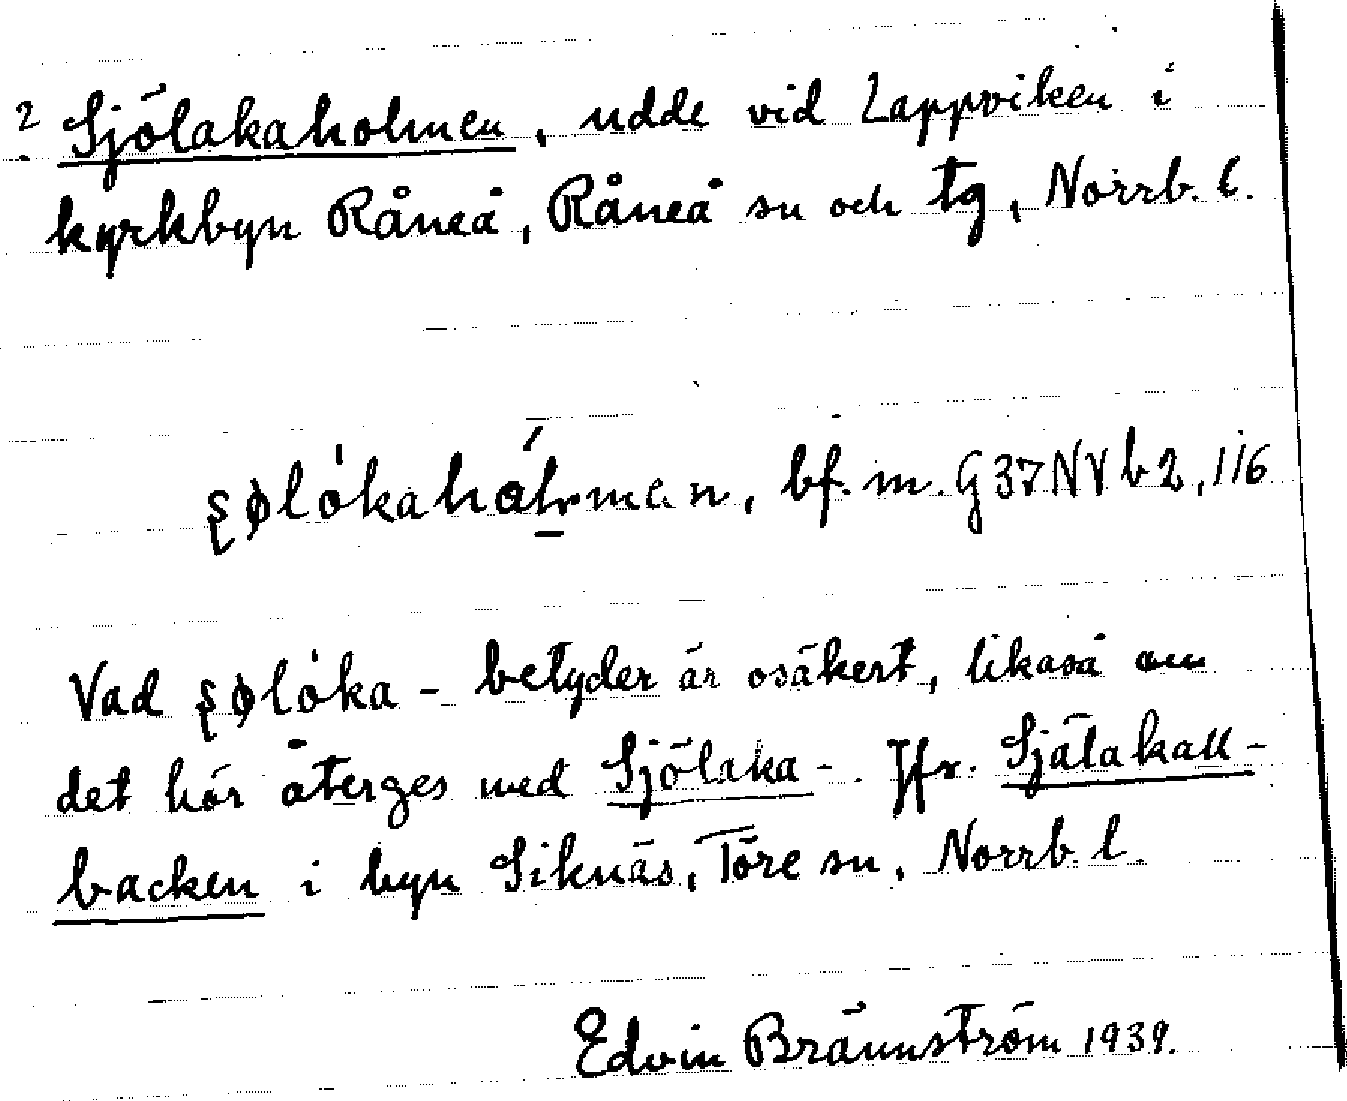 ? Sjölakaholmen, udde vid Lappviken i
kyrkbyn Råneå, Råneå sn och tg, Norrb. l.
bf. m. G37NVb2, 116
Vad betyder är osäkert, likaså om
det bör återges med Sjölaka-. Jfr. Själakall-
backen i byn Siknäs, Töre sn, Norrb. l.
Edvin Brännström 1939.